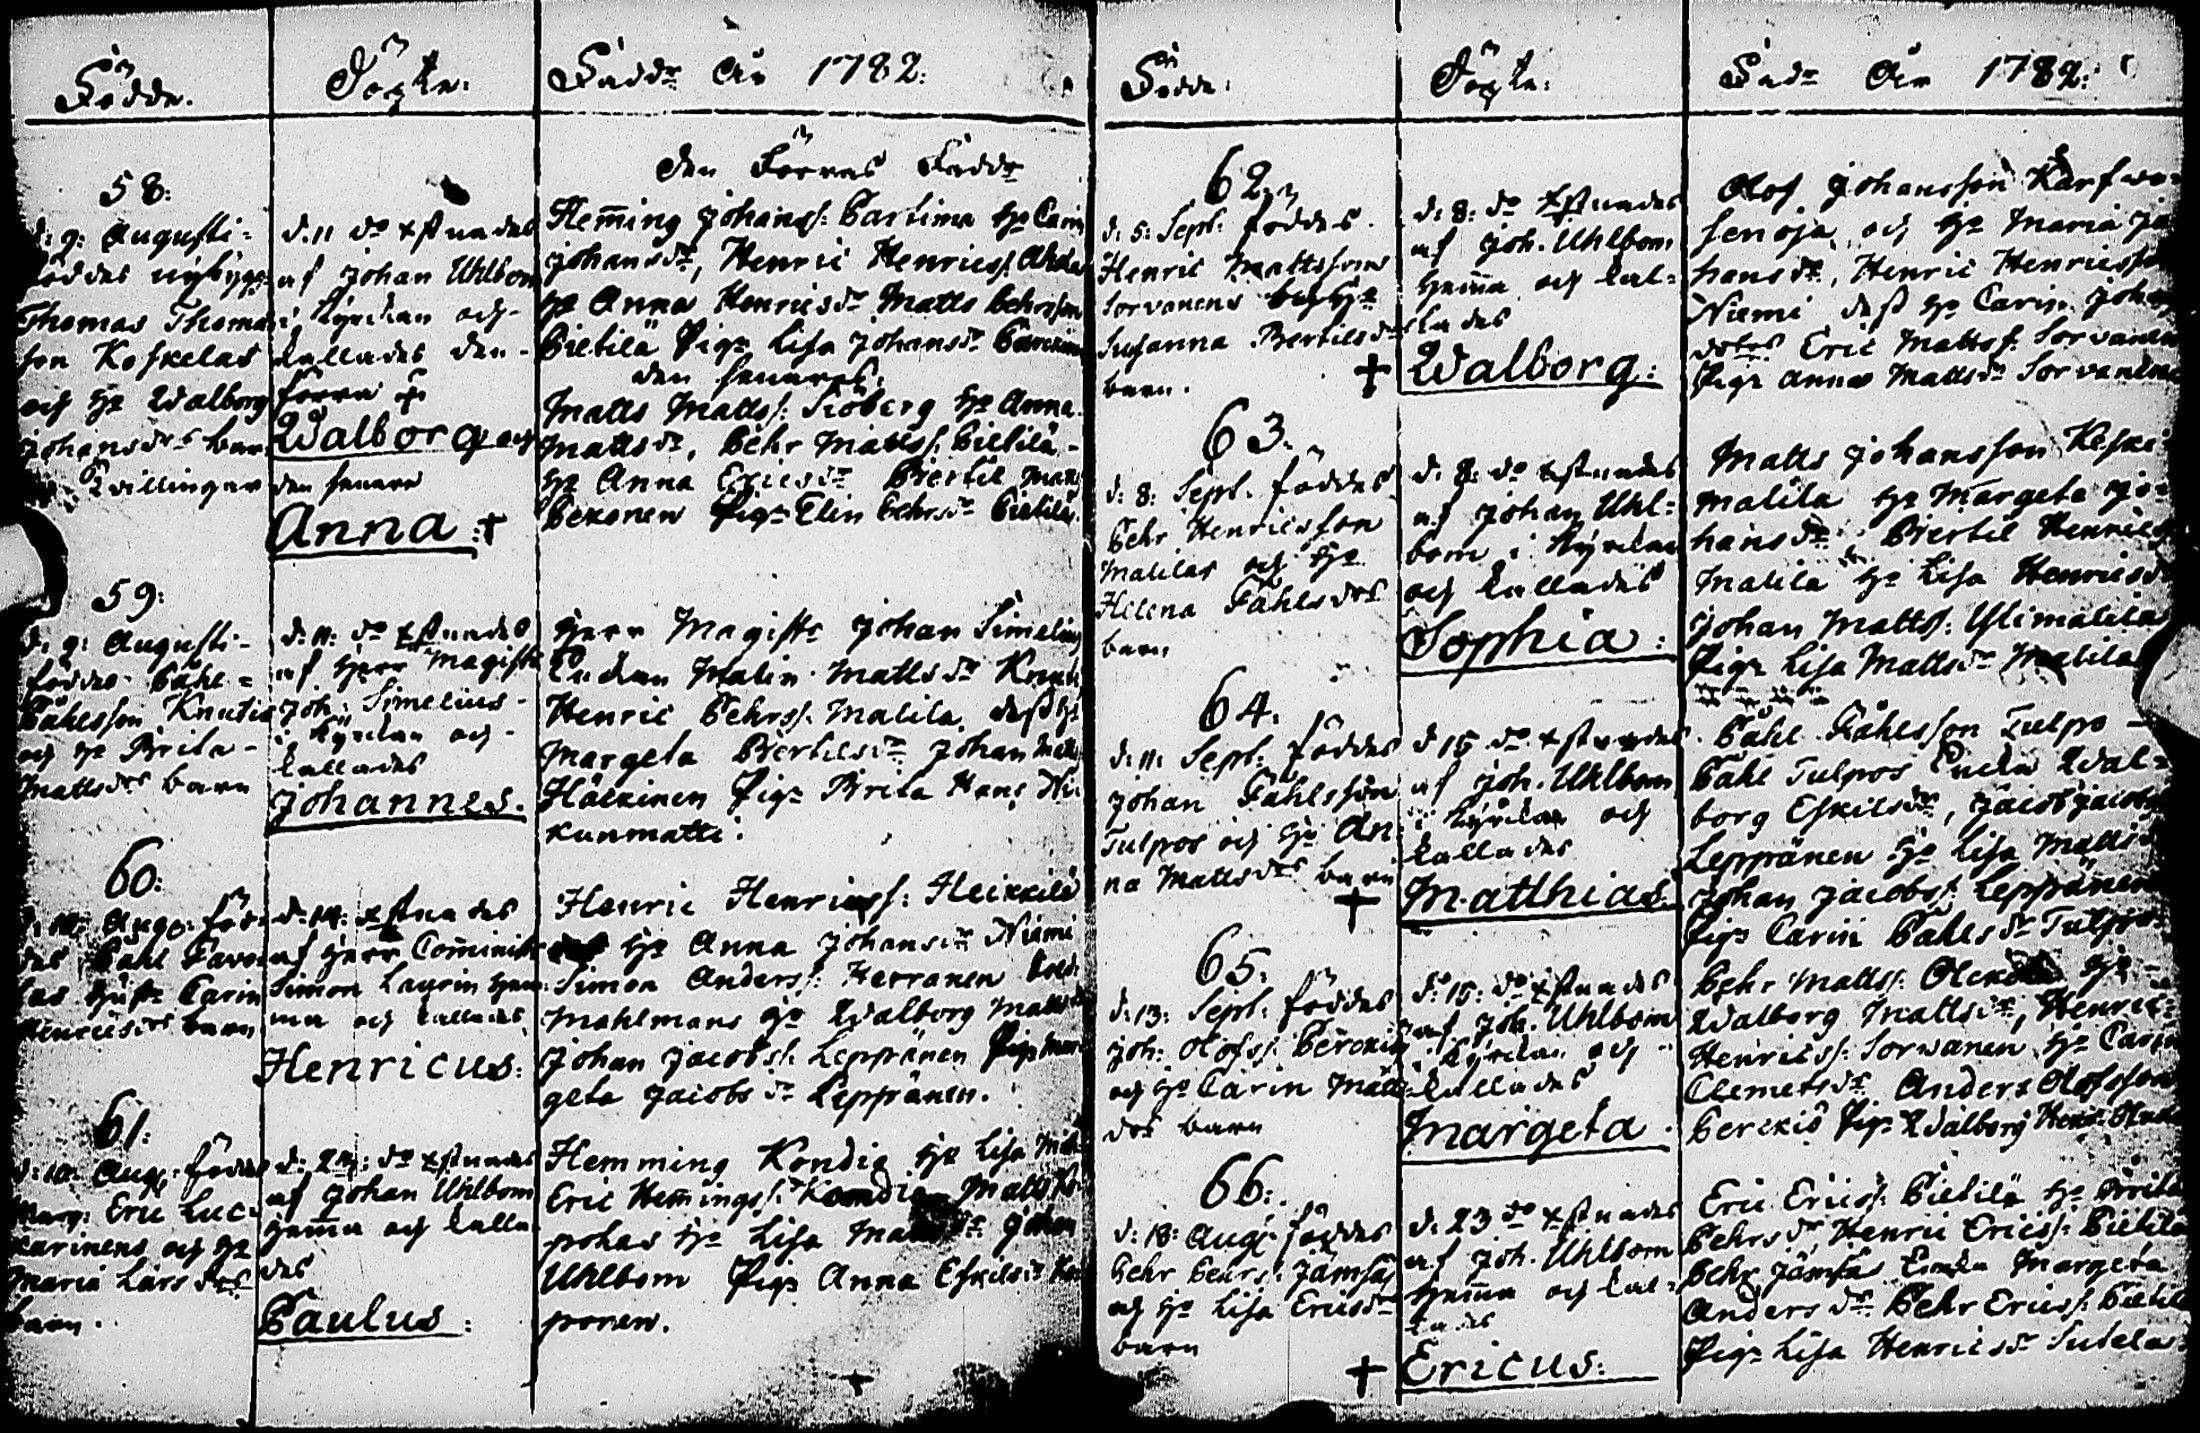 Födde.
Döpte:
Faddr År 1782:
58:
d: 9: Augusti-
föddes nybygg
Thomas Thomas
son Koskelas
och H: Walborg
Johansdrs barn
Tvillingar
d. 11 do xstnades
af Johan Uhlbom
i Kyrckan och
kallades den
förra
Walborg och
den senare
Anna: †
Den Förras Faddr
Hem̄ing Johanss: Partima H: Carin
Johansdr, Henric Henricss: Ahola
H: Anna Henricsdr Matts Pehrsson
Pietilä Pig: Lisa Johansdr
den senares:
Matts Mattss: Siöberg H: Anna
Mattsdr, Pehr Mattss: Pietilä-
H: Anna Ericsdr Biertil Matts
Pekonen Pig: Elin Pehrsdr Pietilä
59:
d. 9: Augusti-
föddes Påhl=
Påhlsson Knutis
och H: Brita-
Mattsdrs barn
d: 11: do xstnades
af Herr Magistr
Joh: Simelius-
i Kyrckan och-
kallades
Johannes.
Herr Magistr Johan Simelius
Enckan Malin Mattsdr Knutis
Henric Pehrss: Matila dess H:
Margeta Biertilsdr Johan Matts
Häckinen Pig: Brita Hans Ni-
kunmatti.
60:
d: 10: Aug: föd-
des Påhl Pavo-
las Hust: Carin
Henricsdrs barn
d: 14: xstnades
af Herr Com̄inist
Simon Laurin hem-
ma och kallades
Henricus:
Henric Henricss: Heickilä
H: Anna Johansdr Niemi
Simon Anderss: Herranen Sold:
Mahlmans H: Walborg Mattsdr
Johan Jacobss: Leppänen Pig: Mar-
geta Jacobsdr Leppänen.
61:
d: 10: Aug: föddes
Eric Luc-
karinens och H:
Maria Larsdrs
barn.
d: 24: do xstnades
af Johan Uhlbom
hem̄a och kalla-
des
Paulus:
Hemming Kondie H: Lisa
Eric Hem̄ingss: Kondie Matts
pohas H: Lisa Johan
Uhlbom Pig: Anna Eskilsdr Ka-
ponen.
†
Födde:
Döpte:
Fadr År 1782:
62.
d: 5: Sept: föddes
Henric Mattssons
Sorvanens H:
Susanna Bertilsdrs
barn.
†
d: 8: do xstnades
af Joh. Uhlbom
hem̄a och kal=
lades
Walborg:
Olof Johansson Karfwo-
senoja och H: Maria Jo
hansdr, Henric Henricsson
Niemi dess H: Carin Johans
doter Eric Mattss: Sorvanen
Pig: Anna Mattsdr Sorvanen
63.
d: 8: Sept. föddes
Pehr Henricsson
Matilas och H:
Helena Påhlsdrs
barn
d. 8: do xstnades
af Johan Uhl=
bom i Kyrckan
och kallades
Sophia:
Matts Johansson Keski
matila H: Margeta Jo-
hansdr Biertil Henrics
Matila H: Lisa Henricsdr
Johan Mattss: Ylimatila
Pig: Lisa Mattsdr Matila
64.
d: 11: Sept: föddes
Johan Påhlsson
Tulpos och H: An
na Mattsdrs barn
†
d 15 do xstnades
af Joh. Uhlbom
i Kyrckan och
kallades
Matthias
Påhl Påhlsson Tulpo-
Påhl Tulpos Encka Wal=
borg Eskilsdr, Jacob Jacobss
Leppänen H: Lisa Mattsdr
Johan Jacobss: Leppänen
Pig: Carin Påhlsdr Tulpo
65:
d: 13: Sept: föddes
Joh: Olofss: Perckiö
och H: Carin Matts
drs barn
d: 15: do xstnades
af Joh. Uhlbom
i Kyrckan och
kallades
Margeta.
Pehr Mattss: H:
Walborg Mattsdr, Henric
Henricss: Sorvanen, H: Carin
Clemetsdr Anders Olofsson
Perckiö Pig: Walborg
66:
d: 18: Aug: föddes
Pehr Pehrs: Jämsäs
och H: Lisa Ericsdr
barn
†
d: 23 do xstnades
af Joh. Uhlbom
hem̄a och kal=
lades
Ericus:
Eric Ericss: Pietilä H: Brita
Pehrsdr Henric Ericss: Pietilä
Pehr Jämsäs Encka Margeta
Andersdr Pehr Ericss: Pietilä
Pig: Lisa Henricsdr Sutela